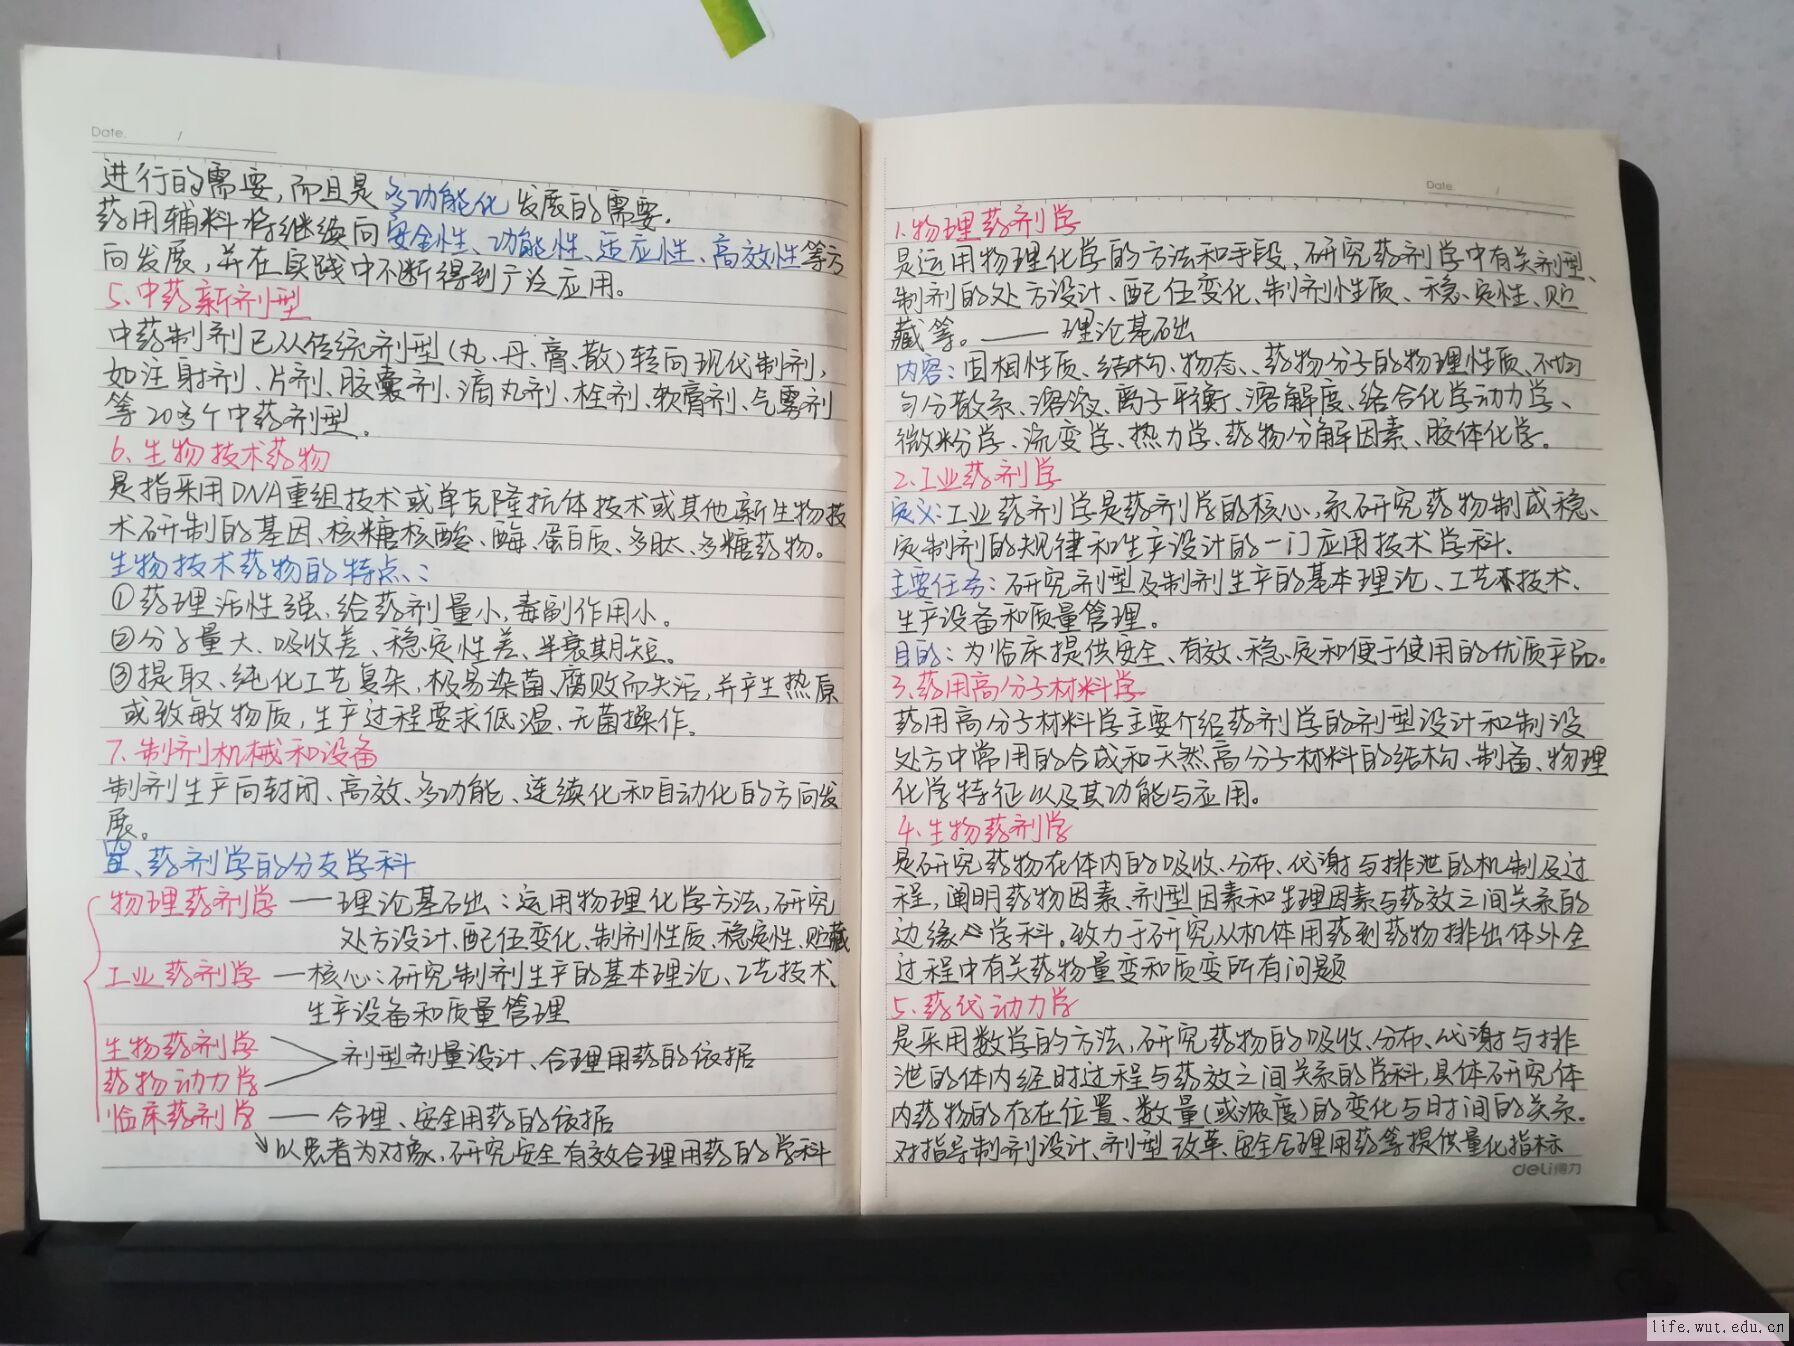 Date. /
进行的需要,而且是多功能化发展的需要.
药用辅料将继续向安全性、功能性、适应性、高效性等方
向发展,并在实践中不断得到广泛应用。
5、中药新剂型
中药制剂已从传统剂型(丸、丹、膏、散)转向现代制剂,
如注射剂、片剂、胶囊剂、滴丸剂、栓剂、软膏剂、气雾剂
等20多个中药剂型。
6、生物技术药物
是指采用DNA重组技术或单克隆抗体技术或其他新生物技
术研制的基因、核糖核酸、酶、蛋白质、多肽、多糖药物。
生物技术药物的特点:
①药理活性强、给药剂量小,毒副作用小。
②分子量大、吸收差、稳定性差、半衰期短。
③提取、纯化工艺复杂,极易染菌、腐败而失活,并产生热原
或致敏物质,生产过程要求低温、无菌操作。
7.制剂机械和设备
制剂生产向封闭、高效、多功能、连续化和自动化的方向发
展。
、药剂学的分支学科
物理药剂学 — 理论基础:运用物理化学方法,研究
处方设计、配伍变化、制剂性质、稳定性、贮藏
工业药剂学 — 核心:研究制剂生产的基本理论、工艺技术、
生产设备和质量管理
生物药剂学
剂型剂量设计、合理用药的依据
药物动力学
临床药剂学 — 合理、安全用药的依据
以患者为对象,研究安全有效合理用药的学科
Date. /
1.物理药剂学
是运用物理化学的方法和手段,研究药剂学中有关剂型、
制剂的处方设计、配伍变化、制剂性质、稳定性、贮
藏等。—— 理论基础
内容:固相性质、结构、物态、药物分子的物理性质、不均
匀分散系、溶液、离子平衡、溶解度、络合化学动力学、
微粉学、流变学、热力学、药物分解因素、胶体化学。
2.工业药剂学
定义:工业药剂学是药剂学的核心,系研究药物制成稳
定制剂的规律和生产设计的一门应用技术学科.
主要任务:研究剂型及制剂生产的基本理论、工艺技术、
生产设备和质量管理。
目的:为临床提供安全、有效、稳定和便于使用的优质产品。
3.药用高分子材料学
药用高分子材料学主要介绍药剂学的剂型设计和制设
处方中常用的合成和天然高分子材料的结构、制备、物理
化学特征以及其功能与应用。
4.生物药剂学
是研究药物在体内的吸收、分布、代谢与排泄的机制及过
程,阐明药物因素、剂型因素和生理因素与药效之间关系的
边缘学科。致力于研究从机体用药到药物排出体外全
过程中有关药物量变和质变所有问题
5.药代动力学
是采用数学的方法,研究药物的吸收、分布、代谢与排
泄的体内经时过程与药效之间关系的学科,具体研究体
内药物的存在位置、数量(或浓度)的变化与时间的关系.
对指导制剂设计、剂型改革、安全合理用药等提供量化指标
deli得力
life.wut.edu.cn